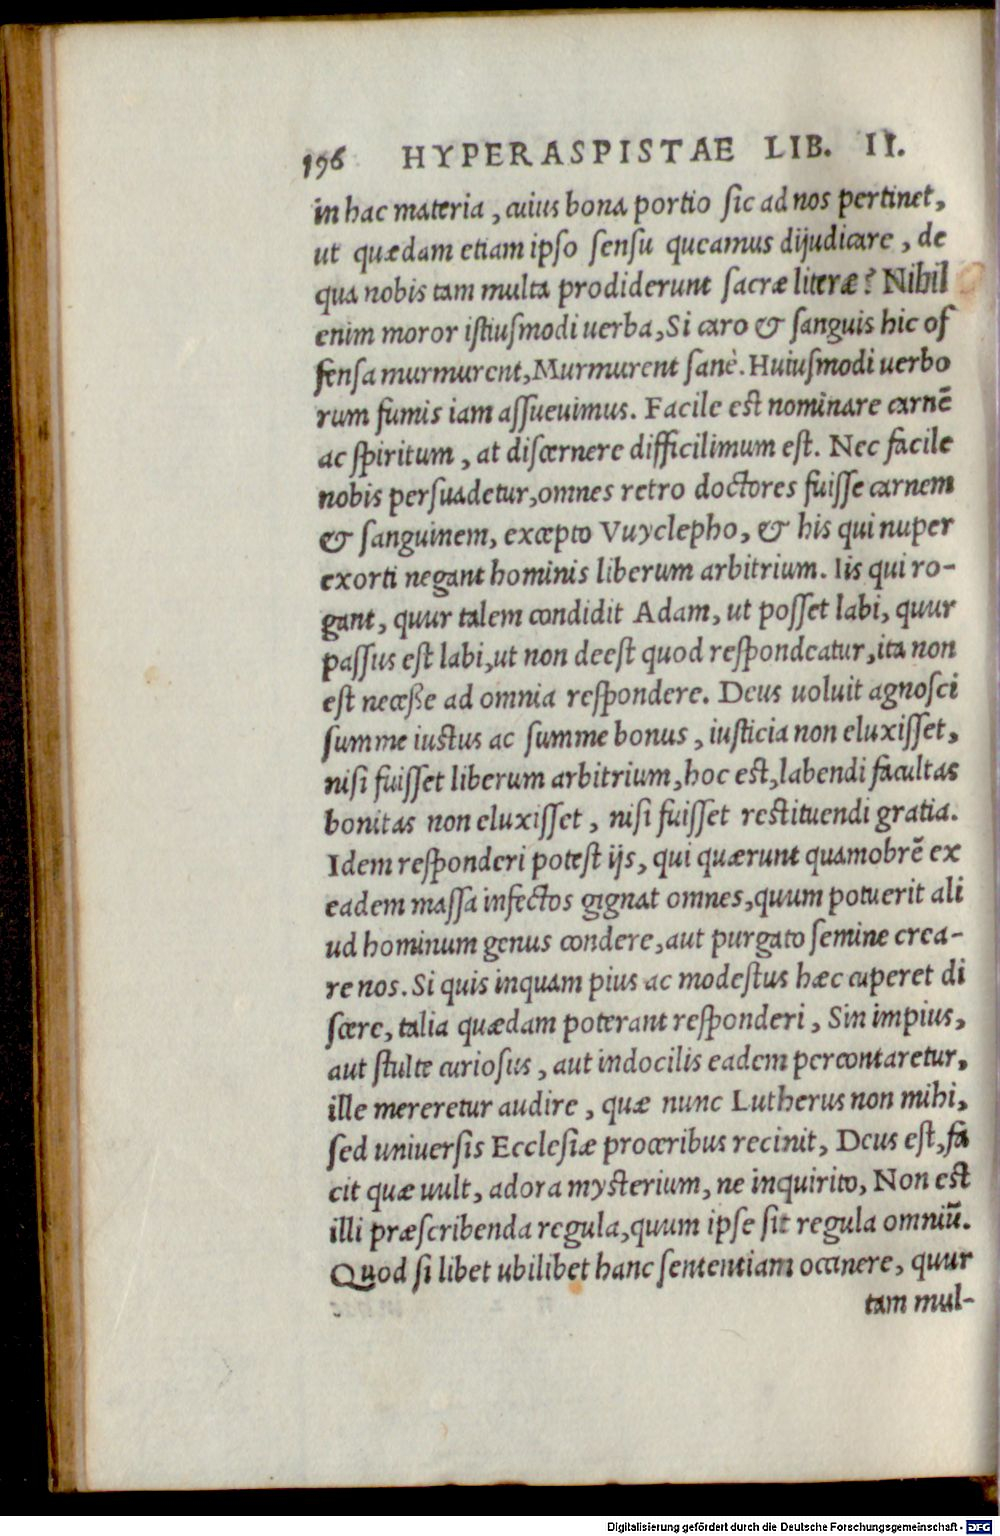 196 HYPERASPISTAE LIB. II.
in hac materia, cuius bona portio sic ad nos pertinet,
ut quædam etiam ipso sensu queamus dijudicare, de
qua nobis tam multa prodiderunt sacræ literæ? Nihil
enim moror istiusmodi uerba, Si caro & sanguis hic of
fensa murmurent, Murmurent sanè. Huiusmodi uerbo
rum fumis iam assueuimus. Facile est nominare carnē
ac spiritum, at discernere difficilimum est. Nec facile
nobis persuadetur, omnes retro doctores fuisse carnem
& sanguinem, excepto Vuyclepho, & his qui nuper
exorti negant hominis liberum arbitrium. Iis qui ro-
gant, quur talem condidit Adam, ut posset labi, quur
passus est labi, ut non deest quod respondeatur, ita non
est necesse ad omnia respondere. Deus uoluit agnosci
summe iustus ac summe bonus, iusticia non eluxisset,
nisi fuisset liberum arbitrium, hoc est, labendi facultas
bonitas non eluxisset, nisi fuisset restituendi gratia.
Idem responderi potest ijs, qui quærunt quamobrē ex
eadem massa infectos gignat omnes, quum potuerit ali
ud hominum genus condere, aut purgato semine crea-
re nos. Si quis inquam pius ac modestus hæc cuperet di
scere, talia quædam poterant responderi, Sin impius,
aut stulte curiosus, aut indocilis eadem percontaretur,
ille mereretur audire, quæ nunc Lutherus non mihi,
sed uniuersis Ecclesiæ proceribus recinit, Deus est, fa
cit quæ uult, adora mysterium, ne inquirito, Non est
illi præscribenda regula, quum ipse sit regula omniū.
Quod si libet ubilibet hanc sententiam occinere, quur
tam mul-
Digitalisierung gefördert durch die Deutsche Forschungsgemeinschaft - DFG